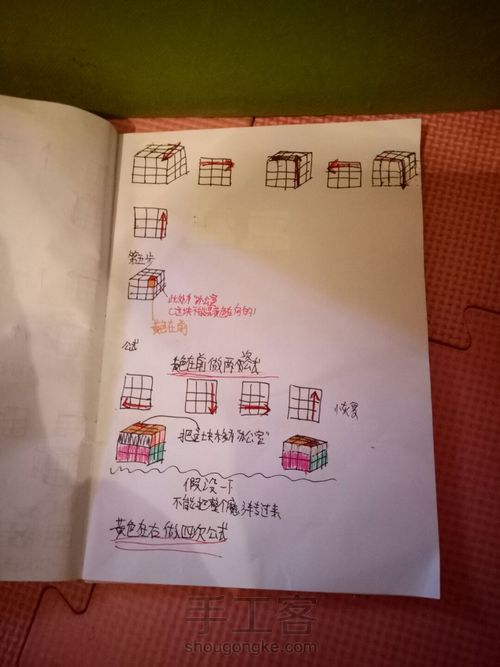 第五步
此处为"办公室"
黄色在前
公式
黄色在前做两次公式
恢复
把这块称为"办公室"
假设一下
不能把整个魔方转过来
黄色在右做四次公式
手工客
shougongke.com